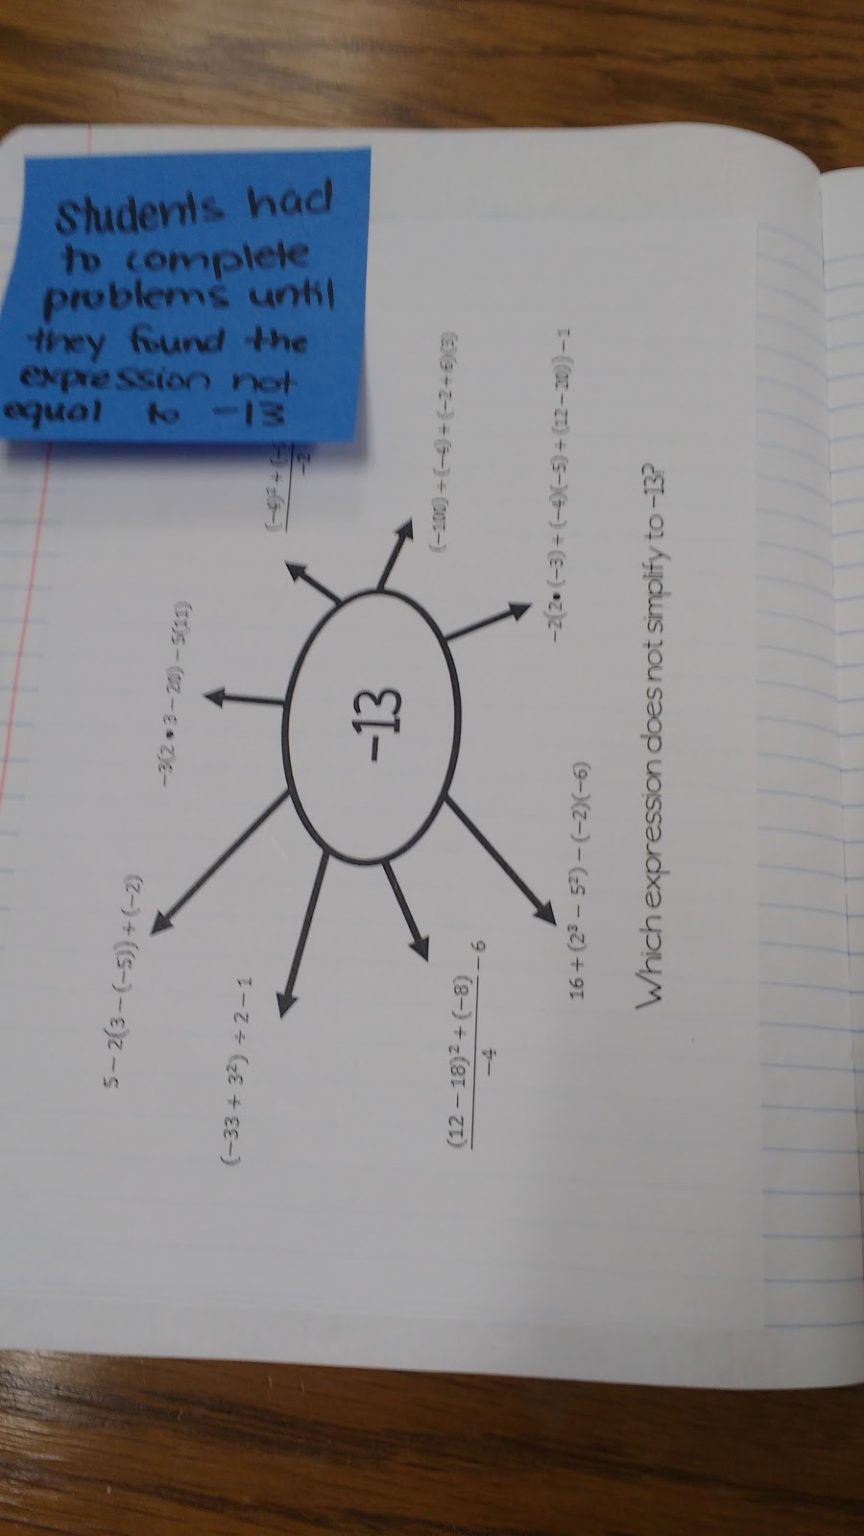 Students had
to complete
problems until
they found the
expression not
equal to -13
5 − 2(3 − (−5)) + (−2)
−3(2 • 3 − 20) − 5(11)
(−33 + 3²) ÷ 2 − 1
−13
(12 − 18)² + (−8)
−4
− 6
(−100) ÷ (−4) + (−2 + 6)(3)
16 + (2³ − 5²) − (−2)(−6)
−2(2• (−3) + (−4)(−5) + (12 − 20)) − 1
Which expression does not simplify to −13?